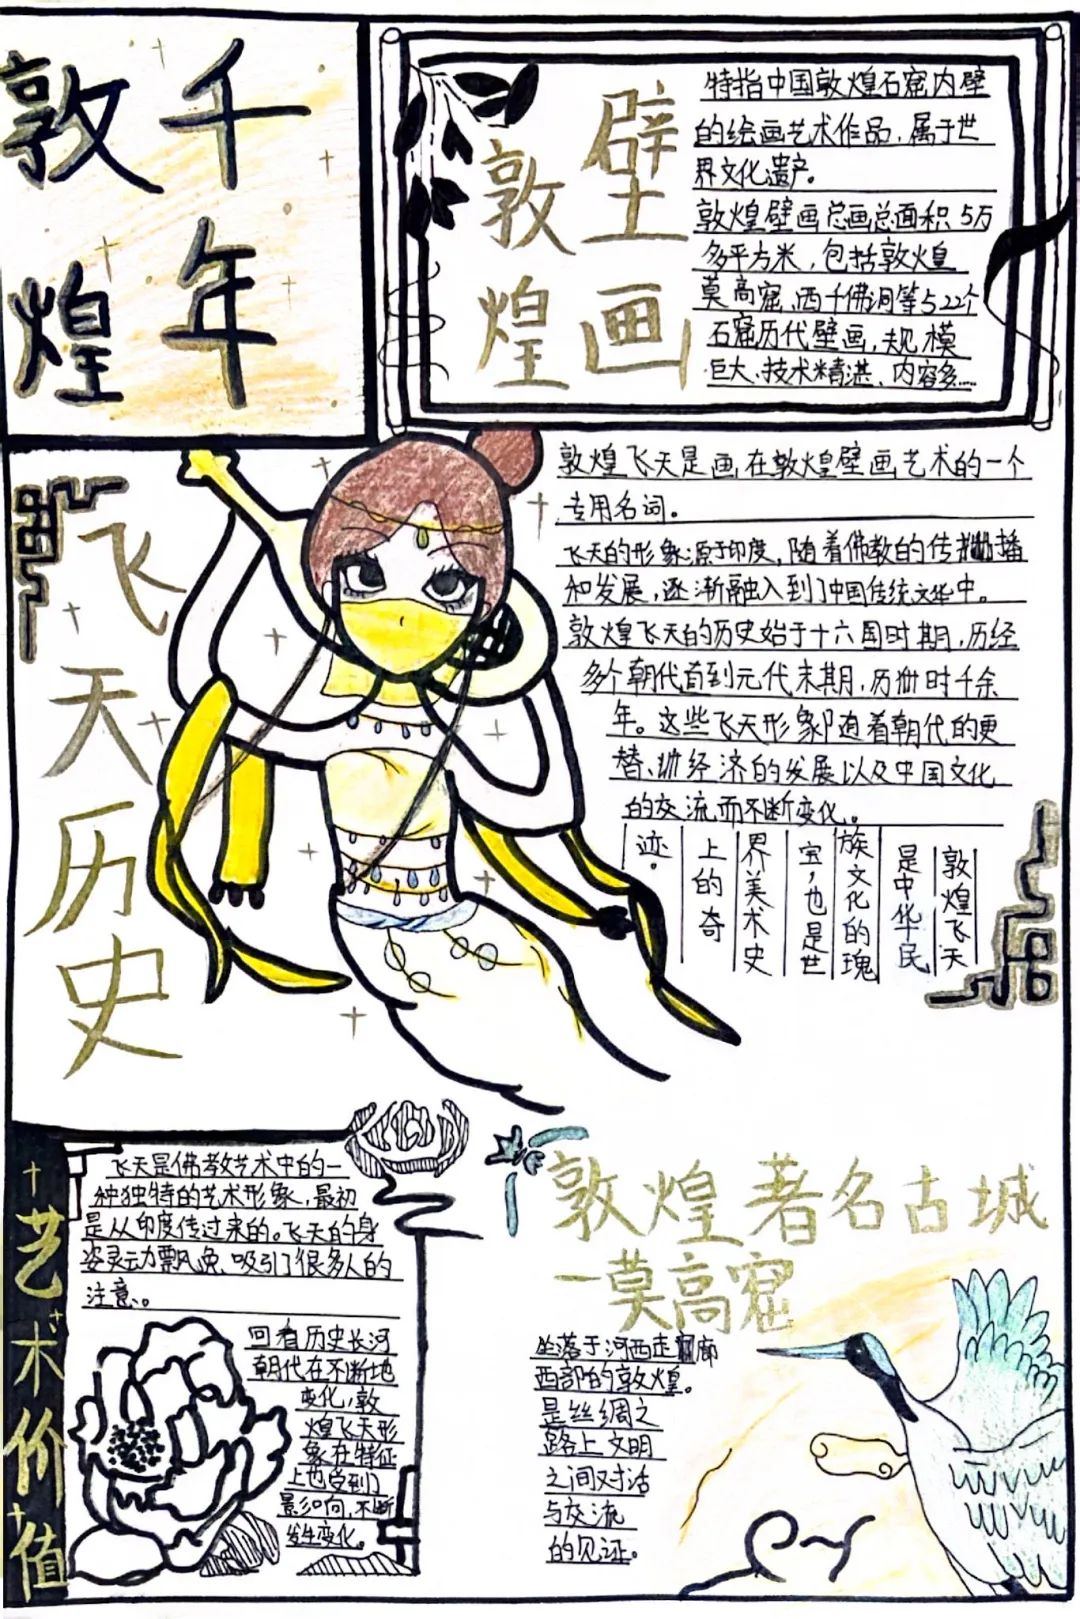 千年
敦煌
敦煌
壁画
特指中国敦煌石窟内壁
的绘画艺术作品，属于世
界文化遗产。
敦煌壁画总画总面积5万
多平方米，包括敦煌
莫高窟、西千佛洞等522个
石窟历代壁画，规模
巨大、技术精湛、内容多...
飞天历史
敦煌飞天是画在敦煌壁画艺术的一个
专用名词。
飞天的形象源于印度，随着佛教的传播
和发展，逐渐融入到了中国传统文华中。
敦煌飞天的历史始于十六国时期，历经
多个朝代直到元代末期，历时千余
年。这些飞天形象随着朝代的更
替、经济的发展以及中国文化
的交流而不断变化。
敦煌飞天
是中华民
族文化的瑰
宝，也是世
界美术史
上的奇
迹。
艺术价值
飞天是佛教艺术中的一
种独特的艺术形象，最初
是从印度传过来的。飞天的身
姿灵动飘逸，吸引了很多人的
注意。
回看历史长河
朝代在不断地
变化，敦
煌飞天形
象在特征
上也受到了
影响，不断
发生变化。
敦煌著名古城
一莫高窟
坐落于河西走廊
西部的敦煌。
是丝绸之
路上文明
之间对话
与交流
的见证。